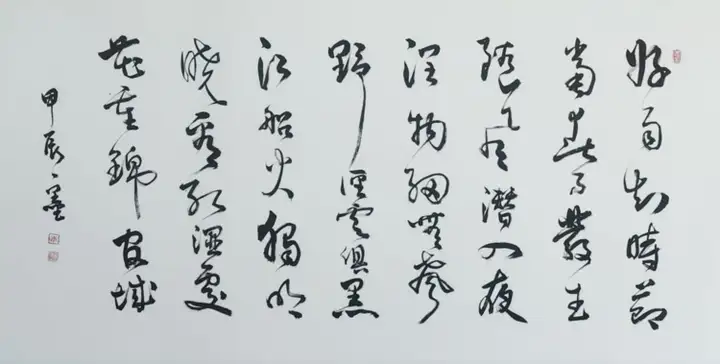 好雨知時節
當春乃發生
隨風潛入夜
潤物細無聲
野徑雲俱黑
江船火獨明
曉看紅濕處
花重錦官城
甲辰一墨